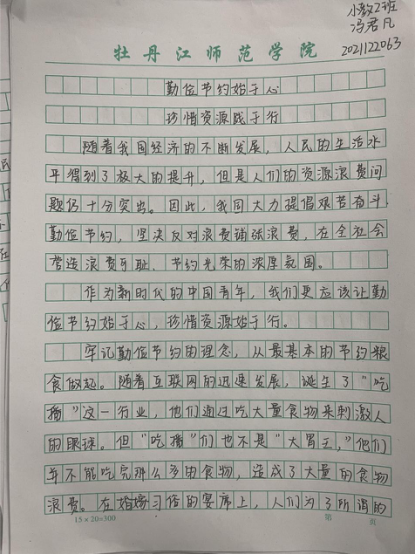 小教2班
冯君凡
2021122063
牡丹江师范学院
勤俭节约始于心
珍惜资源践于行
随着我国经济的不断发展，人民的生活水
平得到了极大的提升，但是人们的资源浪费问
题仍十分突出。因此，我国大力提倡艰苦奋斗，
勤俭节约，坚决反对浪费铺张浪费，在全社会
营造浪费可耻，节约光荣的浓厚氛围。
作为新时代的中国青年，我们更应该让勤
俭节约始于心，珍惜资源始于行。
牢记勤俭节约的理念，从最基本的节约粮
食做起。随着互联网的迅速发展，诞生了“吃
播”这一行业，他们通过吃大量食物来刺激人
的眼球。但“吃播”们也不是“大胃王，”他们
并不能吃完那么多的食物，造成了大量的食物
浪费。在婚嫁习俗的宴席上，人们为了所谓的
15×20=300
第 页